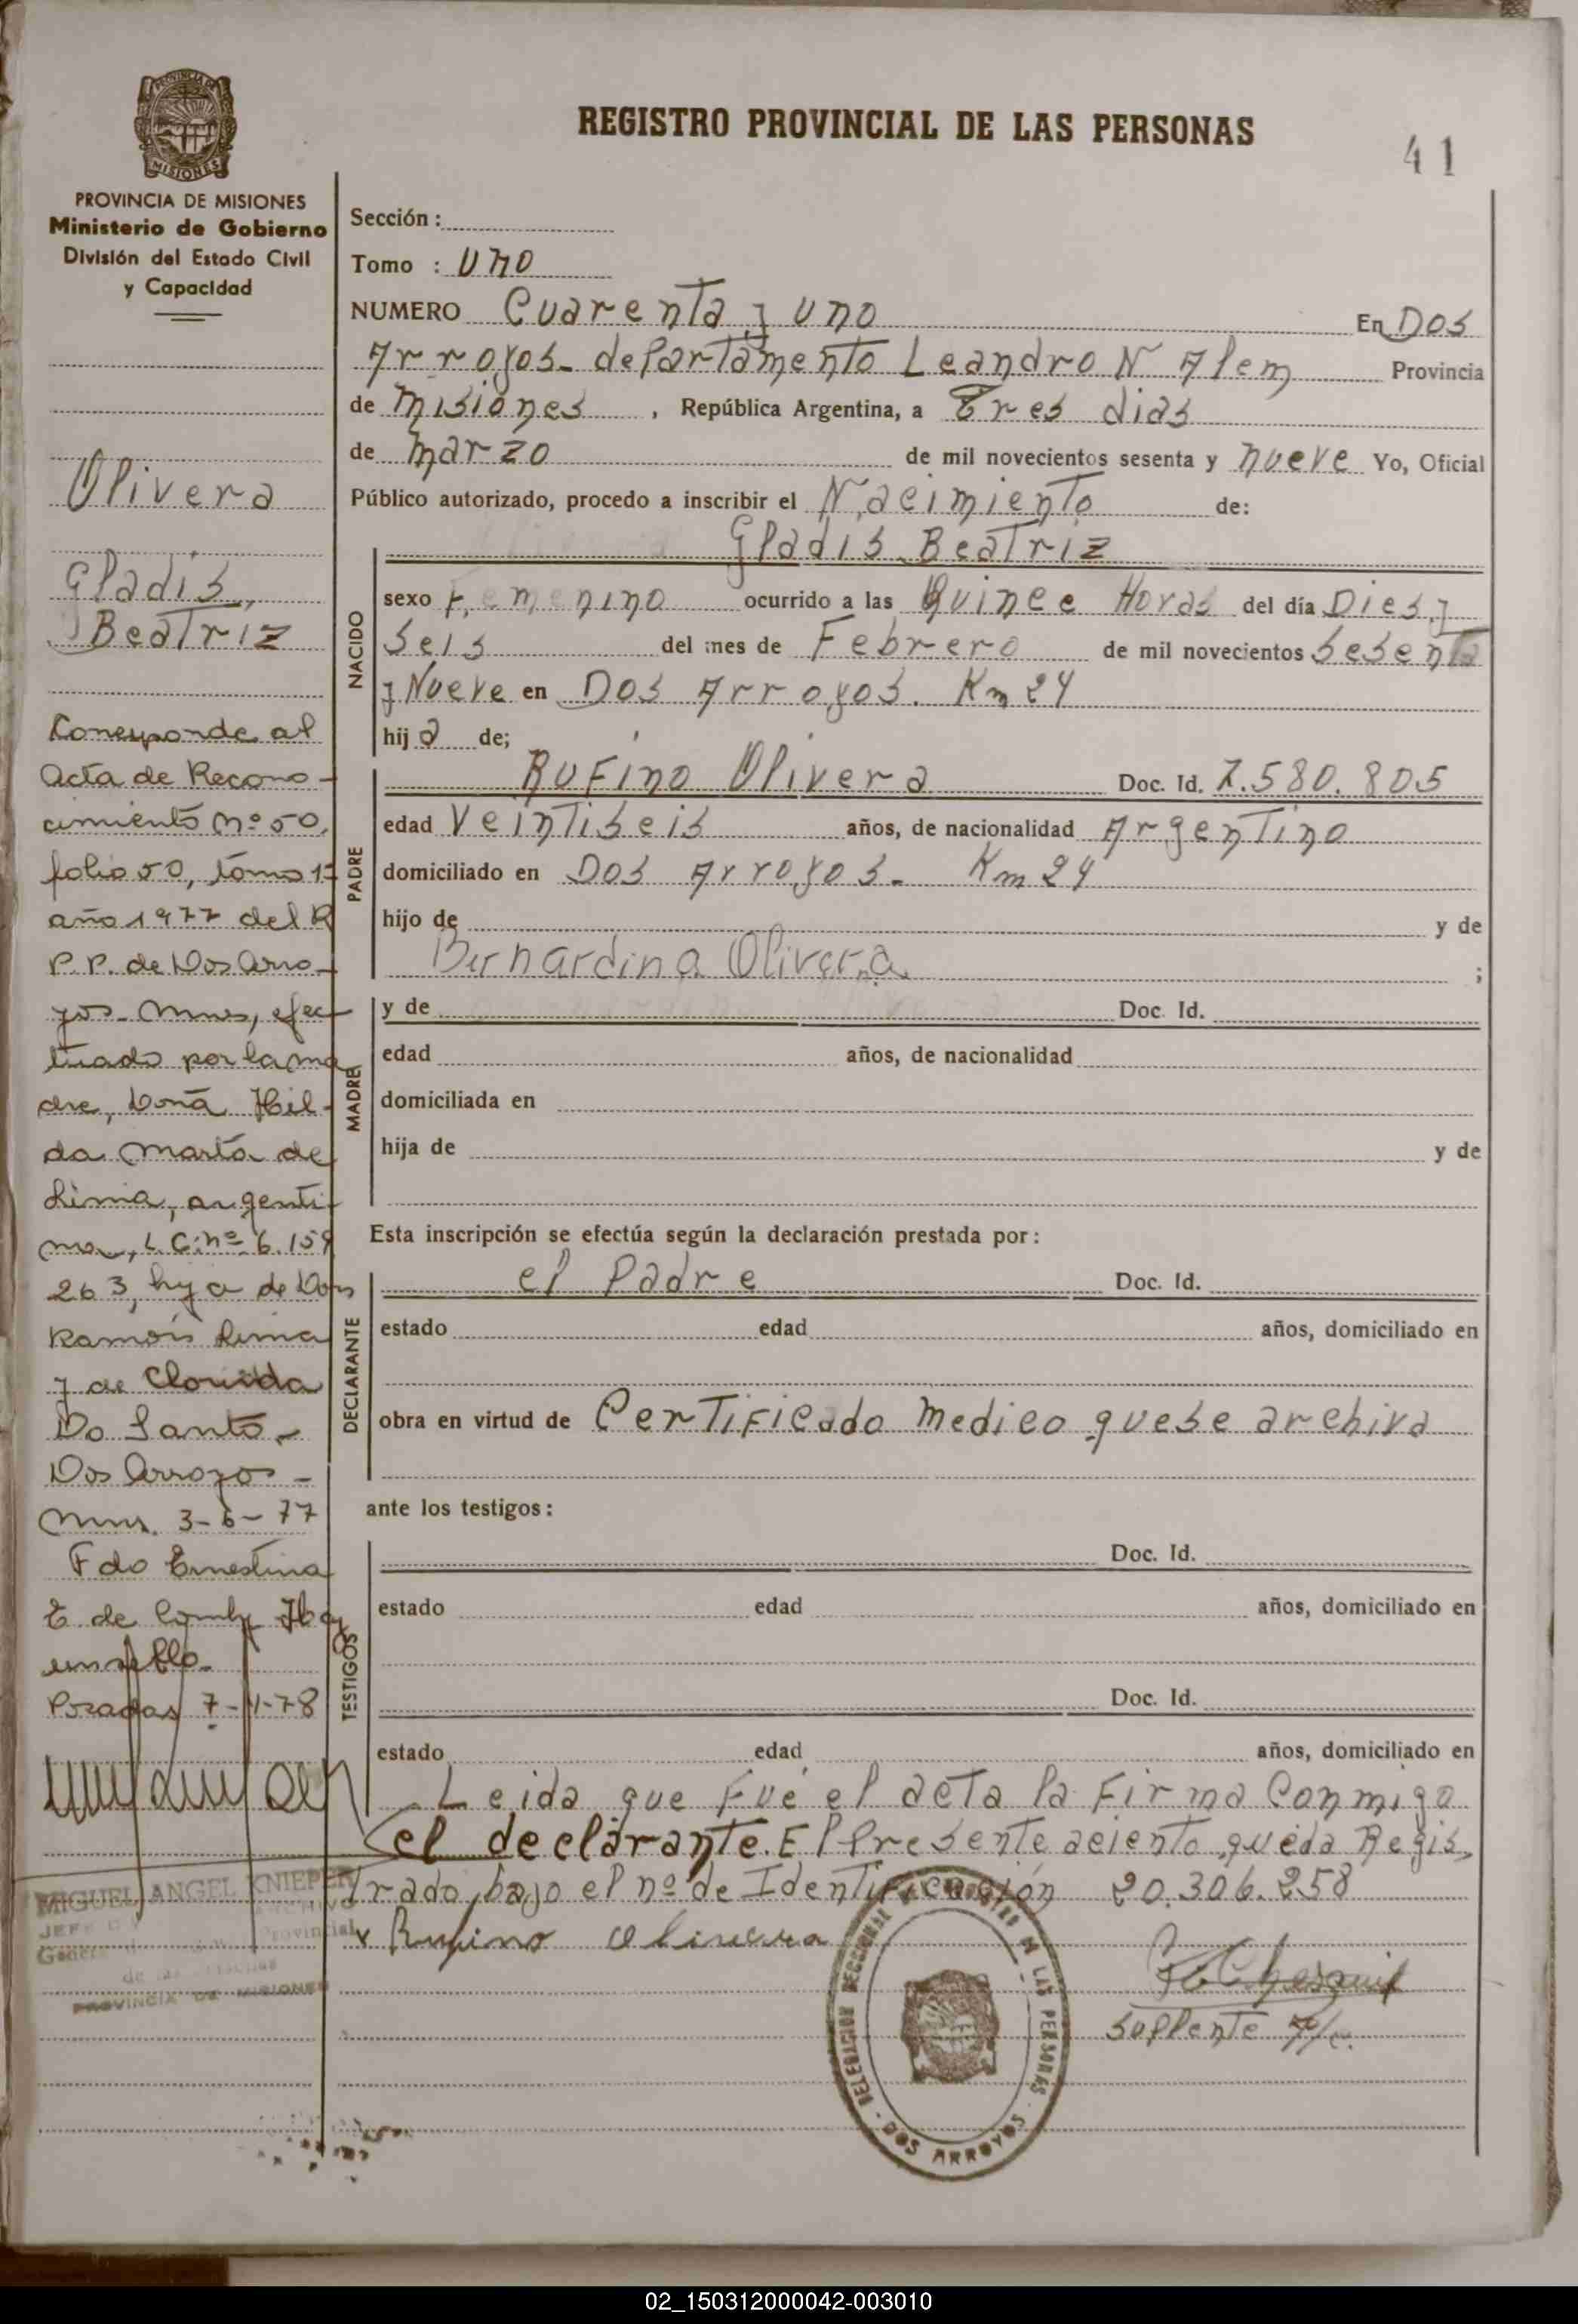 REGISTRO PROVINCIAL DE LAS PERSONAS
41
MISIONES
PROVINCIA DE MISIONES
Ministerio de Gobierno
División del Estado Civil
y Capacidad
Olivera
Gladis,
Beatriz
Corresponde al
Acta de Recono-
cimiento Nº 50,
folio 50, tomo 1º
año 1977 del R
P.P. de Dos Arro-
yos - Mnes, efec-
tuado por la ma
dre, Doña Hil-
da Marta de
Lima, argenti-
na, L.C. nº 6.159
263, hija de Don
Ramón Lima
y de Clorinda
Do Santo -
Dos Arroyos -
Mns. 3-6-77
Fdo Ernestina
E. de Hay
un sello.
Posadas 7-1-78
MIGUEL ANGEL KNIEPER
JEFE
ARCHIVO
Provincial
de las Personas
PROVINCIA DE MISIONES
Sección :
Tomo : Uno
NUMERO Cuarenta y uno En Dos
Arroyos - departamento Leandro N Alem Provincia
de Misiones , República Argentina, a Tres dias
de Marzo de mil novecientos sesenta y nueve Yo, Oficial
Público autorizado, procedo a inscribir el Nacimiento de:
Gladis Beatriz
NACIDO
sexo Femenino ocurrido a las Quince Horas del día Dies y
Seis del mes de Febrero de mil novecientos Sesenta
y Nueve en Dos Arroyos. Km 24
hij a de;
PADRE
Rufino Olivera Doc. Id. 7.580.805
edad Veintiseis años, de nacionalidad Argentino
domiciliado en Dos Arroyos - Km 24
hijo de y de
Bernardina Olivera ;
MADRE
y de Doc. Id.
edad años, de nacionalidad
domiciliada en
hija de y de
Esta inscripción se efectúa según la declaración prestada por :
DECLARANTE
el Padre Doc. Id.
estado edad años, domiciliado en
obra en virtud de Certificado Medico que se archiva
ante los testigos :
TESTIGOS
Doc. Id.
estado edad años, domiciliado en
Doc. Id.
estado edad años, domiciliado en
Leida que Fué el acta la Firma Conmigo
el declarante. El Presente aciento queda Regis,
trado, bajo el nº de Identificación 20.306.258
x Rufino Olivera
Suplente
LAS PERSONAS · DOS ARROYOS · DELEGACION SECCIONAL
02_150312000042-003010